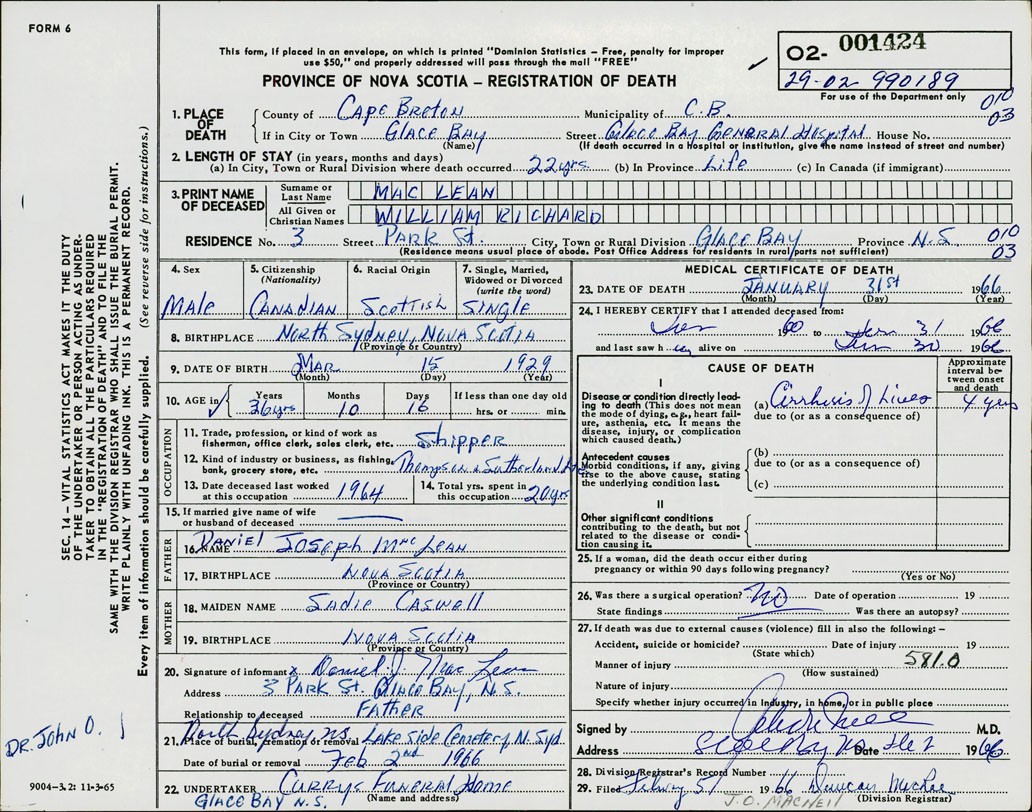 FORM 6
This form, if placed in an envelope, on which is printed "Dominion Statistics – Free, penalty for improper
use $50," and properly addressed will pass through the mail "FREE"
PROVINCE OF NOVA SCOTIA – REGISTRATION OF DEATH
02- 001424
29-02 990189
For use of the Department only
010
03
1. PLACE OF DEATH
County of Cape Breton Municipality of C.B.
If in City or Town Glace Bay Street Glace Bay General Hospital House No.
(Name) (If death occurred in a Hospital or Institution, give the name instead of street and number)
2. LENGTH OF STAY (in years, months and days)
(a) In City, Town or Rural Division where death occurred 22 yrs (b) In Province Life (c) In Canada (if immigrant)
3. PRINT NAME OF DECEASED
Surname or Last Name MAC LEAN
All Given or Christian Names WILLIAM RICHARD
RESIDENCE No. 3 Street Park St. City, Town or Rural Division Glace Bay Province N.S.
(Residence means usual place of abode. Post Office Address for residents in rural parts not sufficient)
010
03
4. Sex Male
5. Citizenship (Nationality) Canadian
6. Racial Origin Scottish
7. Single, Married, Widowed or Divorced (write the word) Single
8. BIRTHPLACE North Sydney, Nova Scotia
(Province or Country)
9. DATE OF BIRTH Mar 15 1929
(Month) (Day) (Year)
10. AGE in Years 36 yrs Months 10 Days 16 If less than one day old hrs. or min.
OCCUPATION
11. Trade, profession, or kind of work as
fisherman, office clerk, sales clerk, etc. Shipper
12. Kind of industry or business, as fishing,
bank, grocery store, etc. Thompson & Sutherland
13. Date deceased last worked
at this occupation 1964
14. Total yrs. spent in
this occupation 20 yrs
15. If married give name of wife
or husband of deceased
FATHER
16. NAME Daniel Joseph MacLean
17. BIRTHPLACE Nova Scotia
(Province or Country)
MOTHER
18. MAIDEN NAME Sadie Caswell
19. BIRTHPLACE Nova Scotia
(Province or Country)
20. Signature of informant x Daniel J. MacLean
Address 3 Park St. Glace Bay, N.S.
Relationship to deceased Father
21. Place of burial, cremation or removal North Sydney N.S. Lake Side Cemetery N. Syd
Date of burial or removal Feb 2nd 1966
22. UNDERTAKER Currys Funeral Home
(Name and address)
Glace Bay N.S.
MEDICAL CERTIFICATE OF DEATH
23. DATE OF DEATH January 31st 1966
(Month) (Day) (Year)
24. I HEREBY CERTIFY that I attended deceased from:
1960 to Jan 31 1966
and last saw h alive on Jan 30 1966
CAUSE OF DEATH
Approximate interval between onset and death
I
Disease or condition directly leading to death (This does not mean
the mode of dying, e.g., heart failure, asthenia, etc. It means the
disease, injury, or complication
which caused death.)
(a) Cirrhosis of Liver 4 years
due to (or as a consequence of)
Antecedent causes
Morbid conditions, if any, giving
rise to the above cause, stating
the underlying condition last.
(b)
due to (or as a consequence of)
(c)
II
Other significant conditions
contributing to the death, but not
related to the disease or condition causing it.
25. If a woman, did the death occur either during
pregnancy or within 90 days following pregnancy?
(Yes or No)
26. Was there a surgical operation? No Date of operation 19
State findings Was there an autopsy?
27. If death was due to external causes (violence) fill in also the following: –
Accident, suicide or homicide? Date of injury 19
(State which)
Manner of injury 581.0
(How sustained)
Nature of injury
Specify whether injury occurred in industry, in home, or in public place
Signed by M.D.
Address Date 1966
28. Division Registrar's Record Number
29. Filed 1966 Duncan MacRae
J.O. MACNEIL (Division Registrar)
SEC. 14 – VITAL STATISTICS ACT MAKES IT THE DUTY
OF THE UNDERTAKER OR PERSON ACTING AS UNDER-
TAKER TO OBTAIN ALL THE PARTICULARS REQUIRED
IN THE "REGISTRATION OF DEATH" AND TO FILE THE
SAME WITH THE DIVISION REGISTRAR WHO SHALL ISSUE THE BURIAL PERMIT.
WRITE PLAINLY WITH UNFADING INK. THIS IS A PERMANENT RECORD.
Every item of information should be carefully supplied. (See reverse side for instructions.)
DR. JOHN O.
9004-3.2: 11-3-65